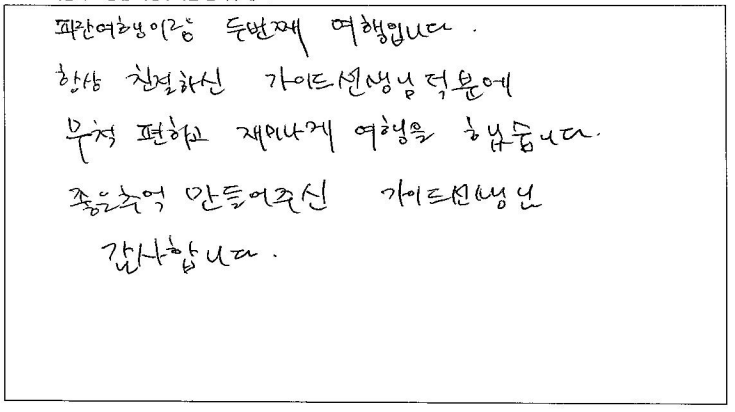 파란여행이랑 두번째 여행입니다.
항상 친절하신 가이드선생님덕분에
무척 편하고 재미나게 여행을 했습니다.
좋은추억 만들어주신 가이드선생님
감사합니다.